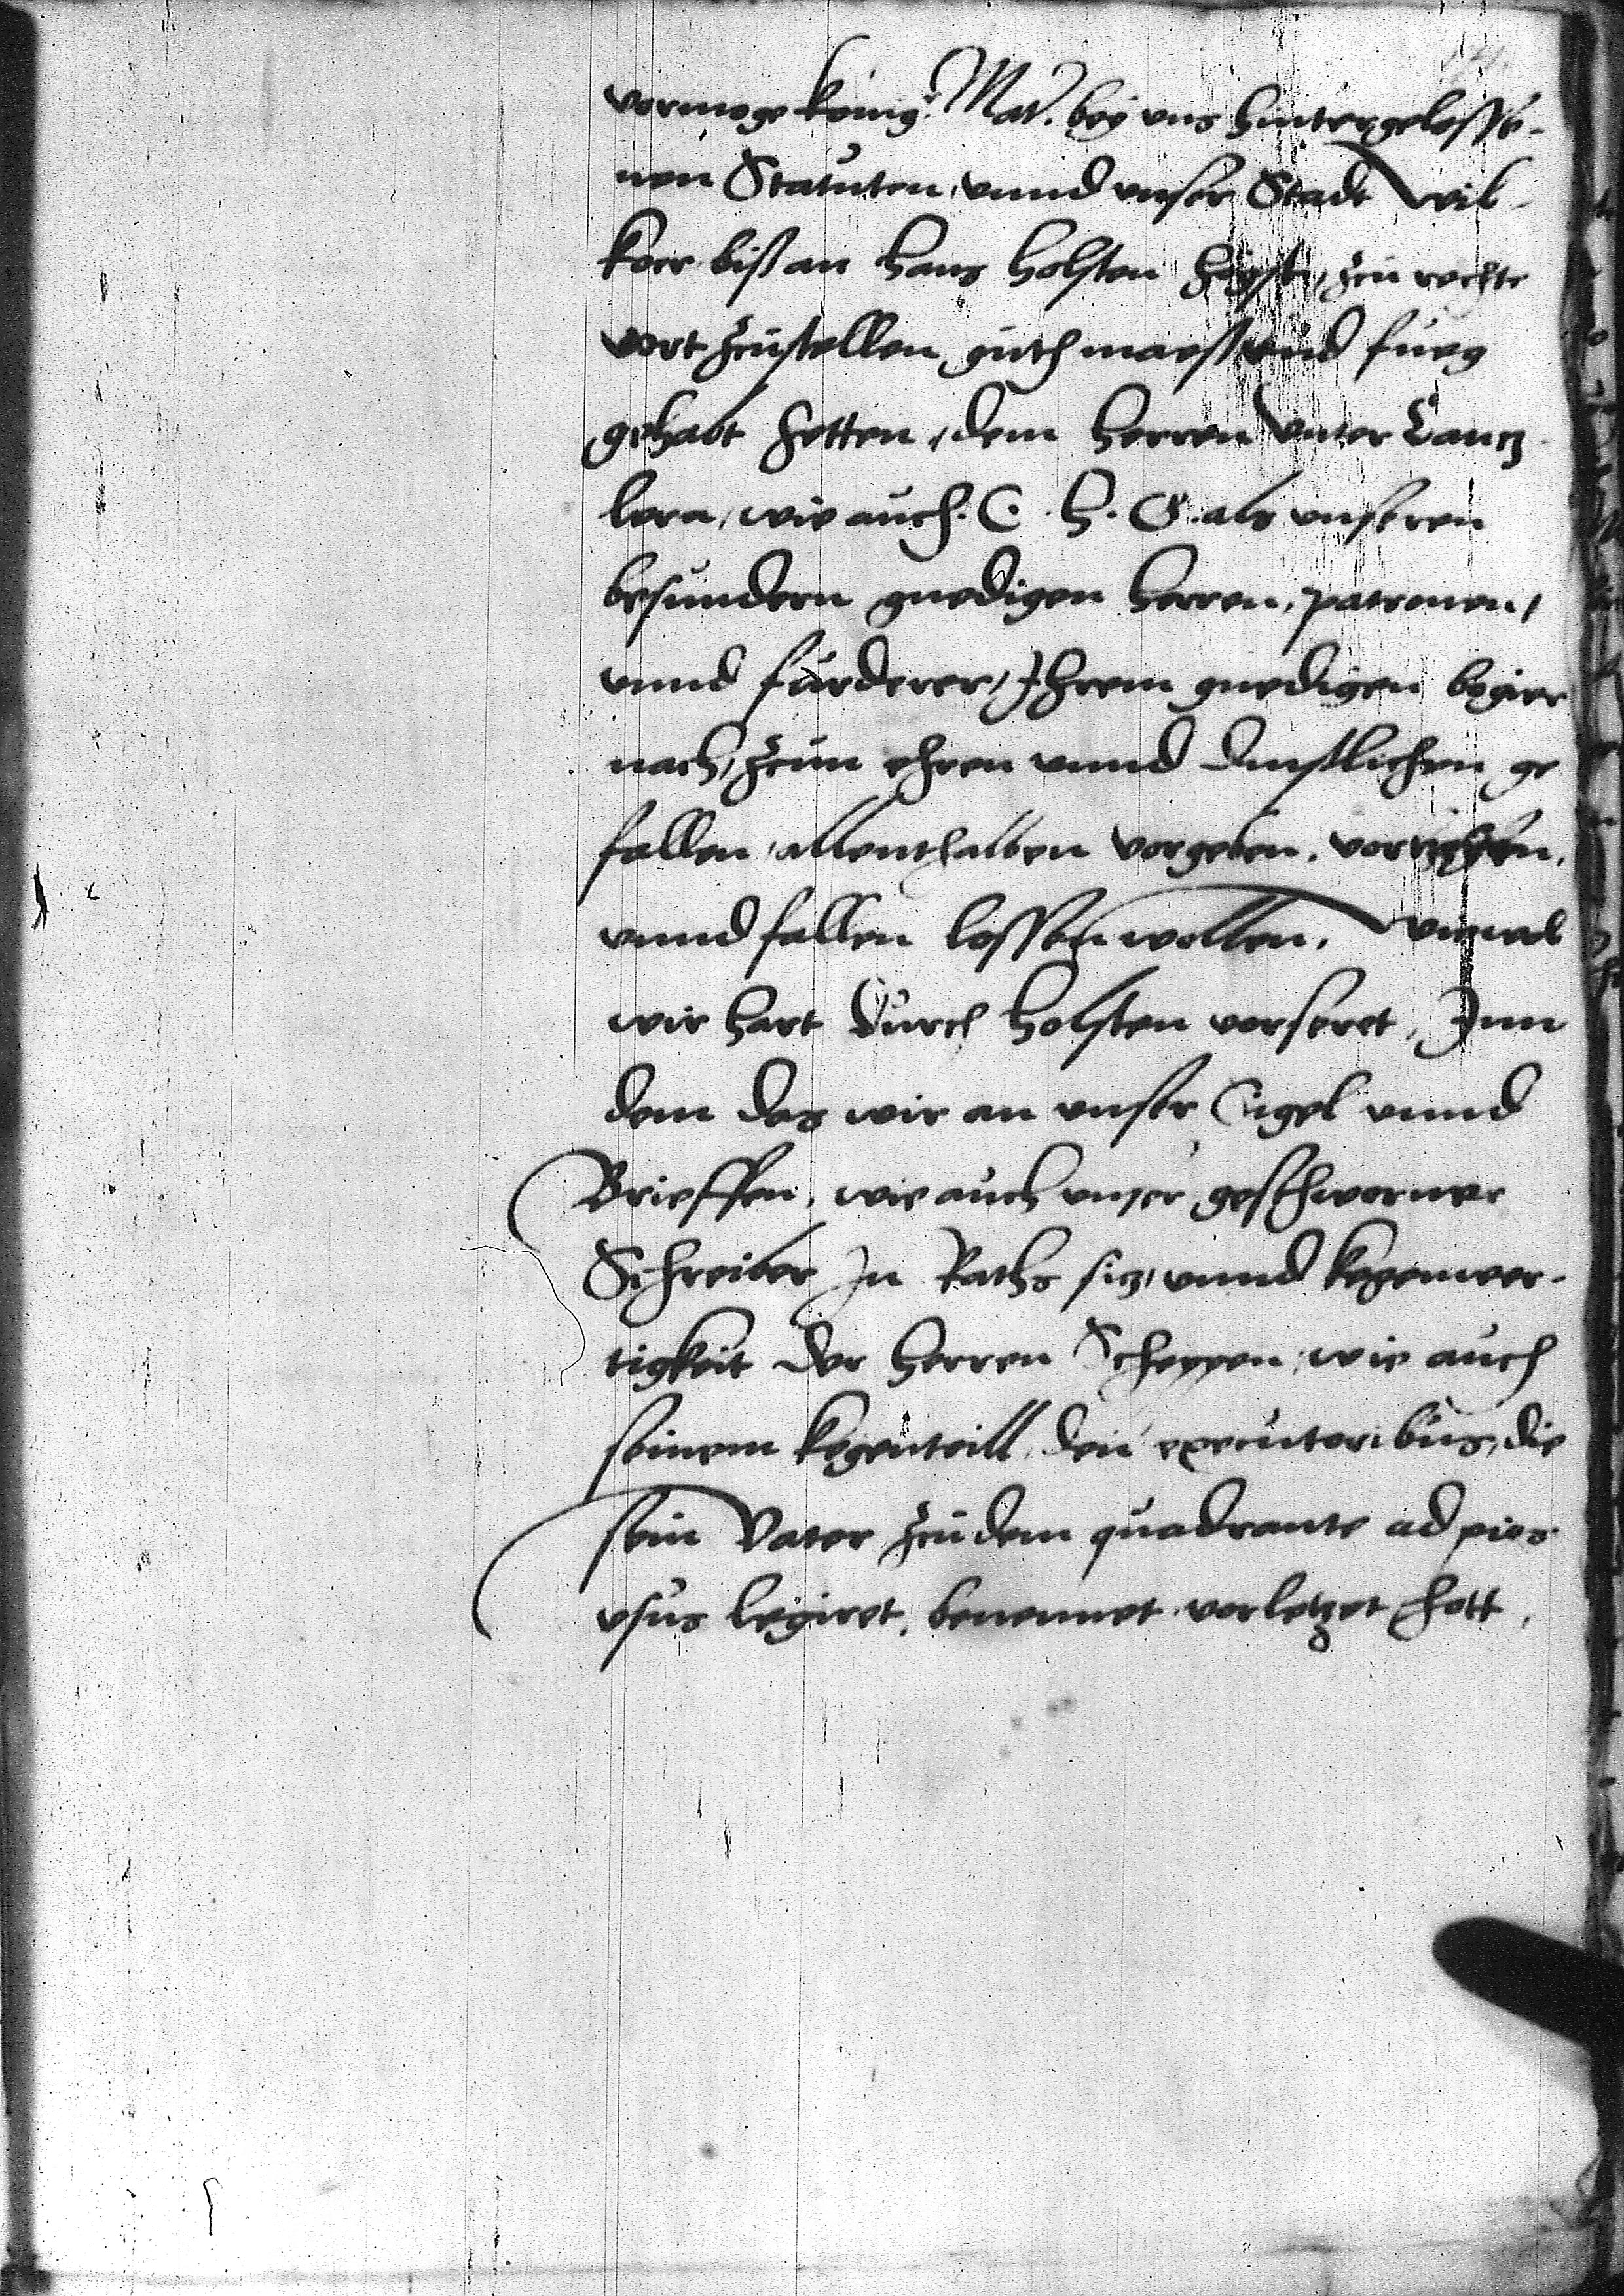 vormoge konig. Mat. bey vns hintergelosse-
nen Statuten, vnnd vnser Stadt wil-
koer biß an hans holsten hogste, zcu rechte
vort zcustellen, guth maeß vnd fueg
gehabt hetten, dem herren vnter Cantz-
lern, wie auch. E. H. G. als vnseren
besundern gnedigen herren, patronen,
vnnd furderer, Ihrem gnedigen begier
nach, zcun ehren vnnd dinstlichen ge
fallen, allenthalben vorgeben. vorziehen.
vnnd fallen lossen wollen. 
wir hart durch holsten vorseret, Inn
dem das wir an vnser Sigel vnnd
Brieffen, wie auch vnser geschworner
Schreiber In Raths sitz, vnnd kegenwer-
tigkeit der herren Scheppen, wie auch
seinem kegenteill, den executoribus, die
sein Vater zcu dem quadrante ad pios
vsus legiret, benennet vorletzet hott.